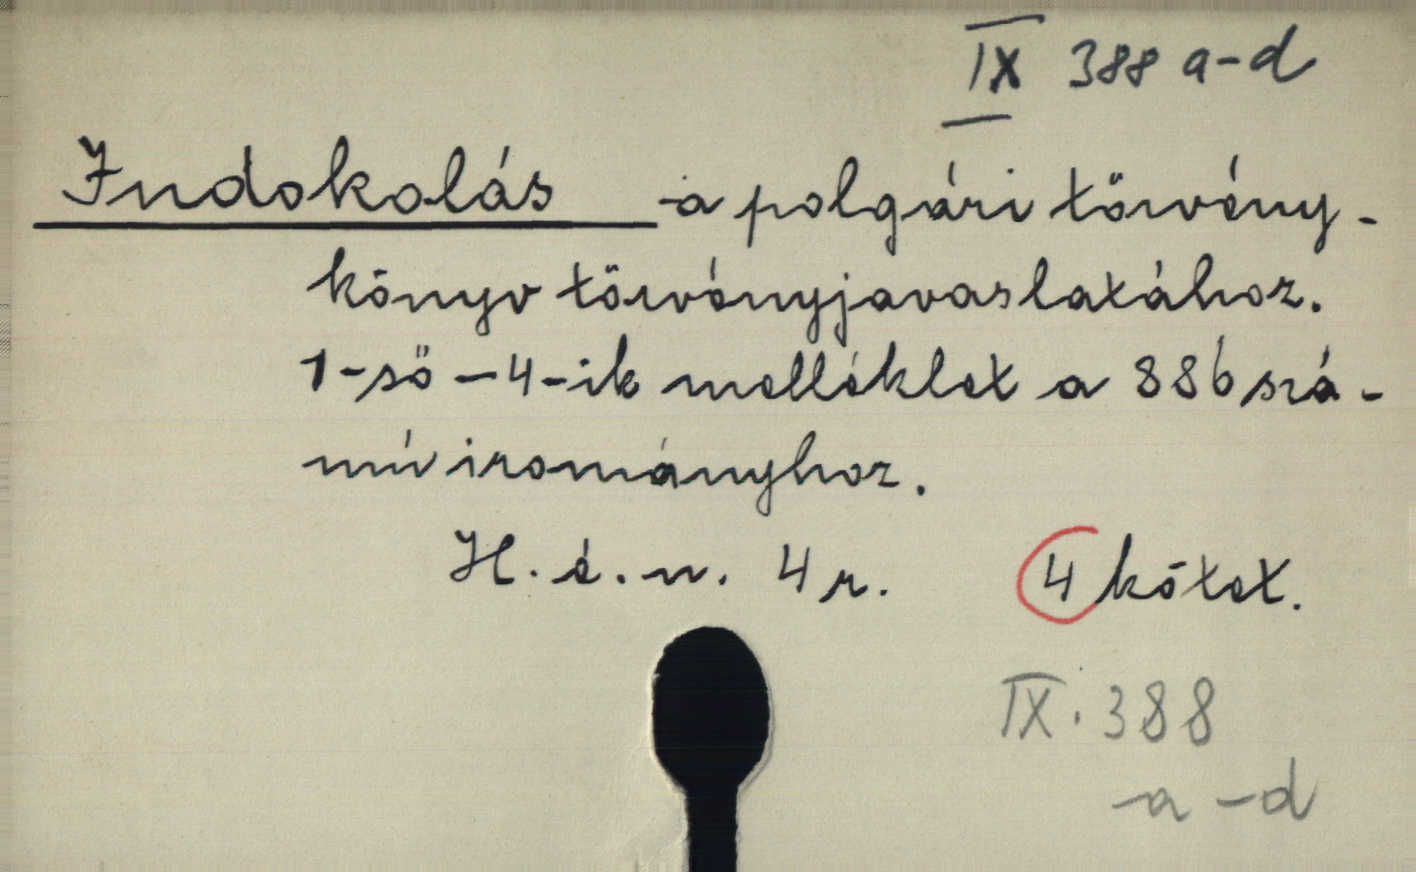 IX 388 a-d
Indokolás a polgári törvény-
könyv törvényjavaslatához.
1-ső-4-ik melléklet a 886 szá-
mú irományhoz.
H. é. n. 4 r. 4 kötet.
IX. 388
a-d